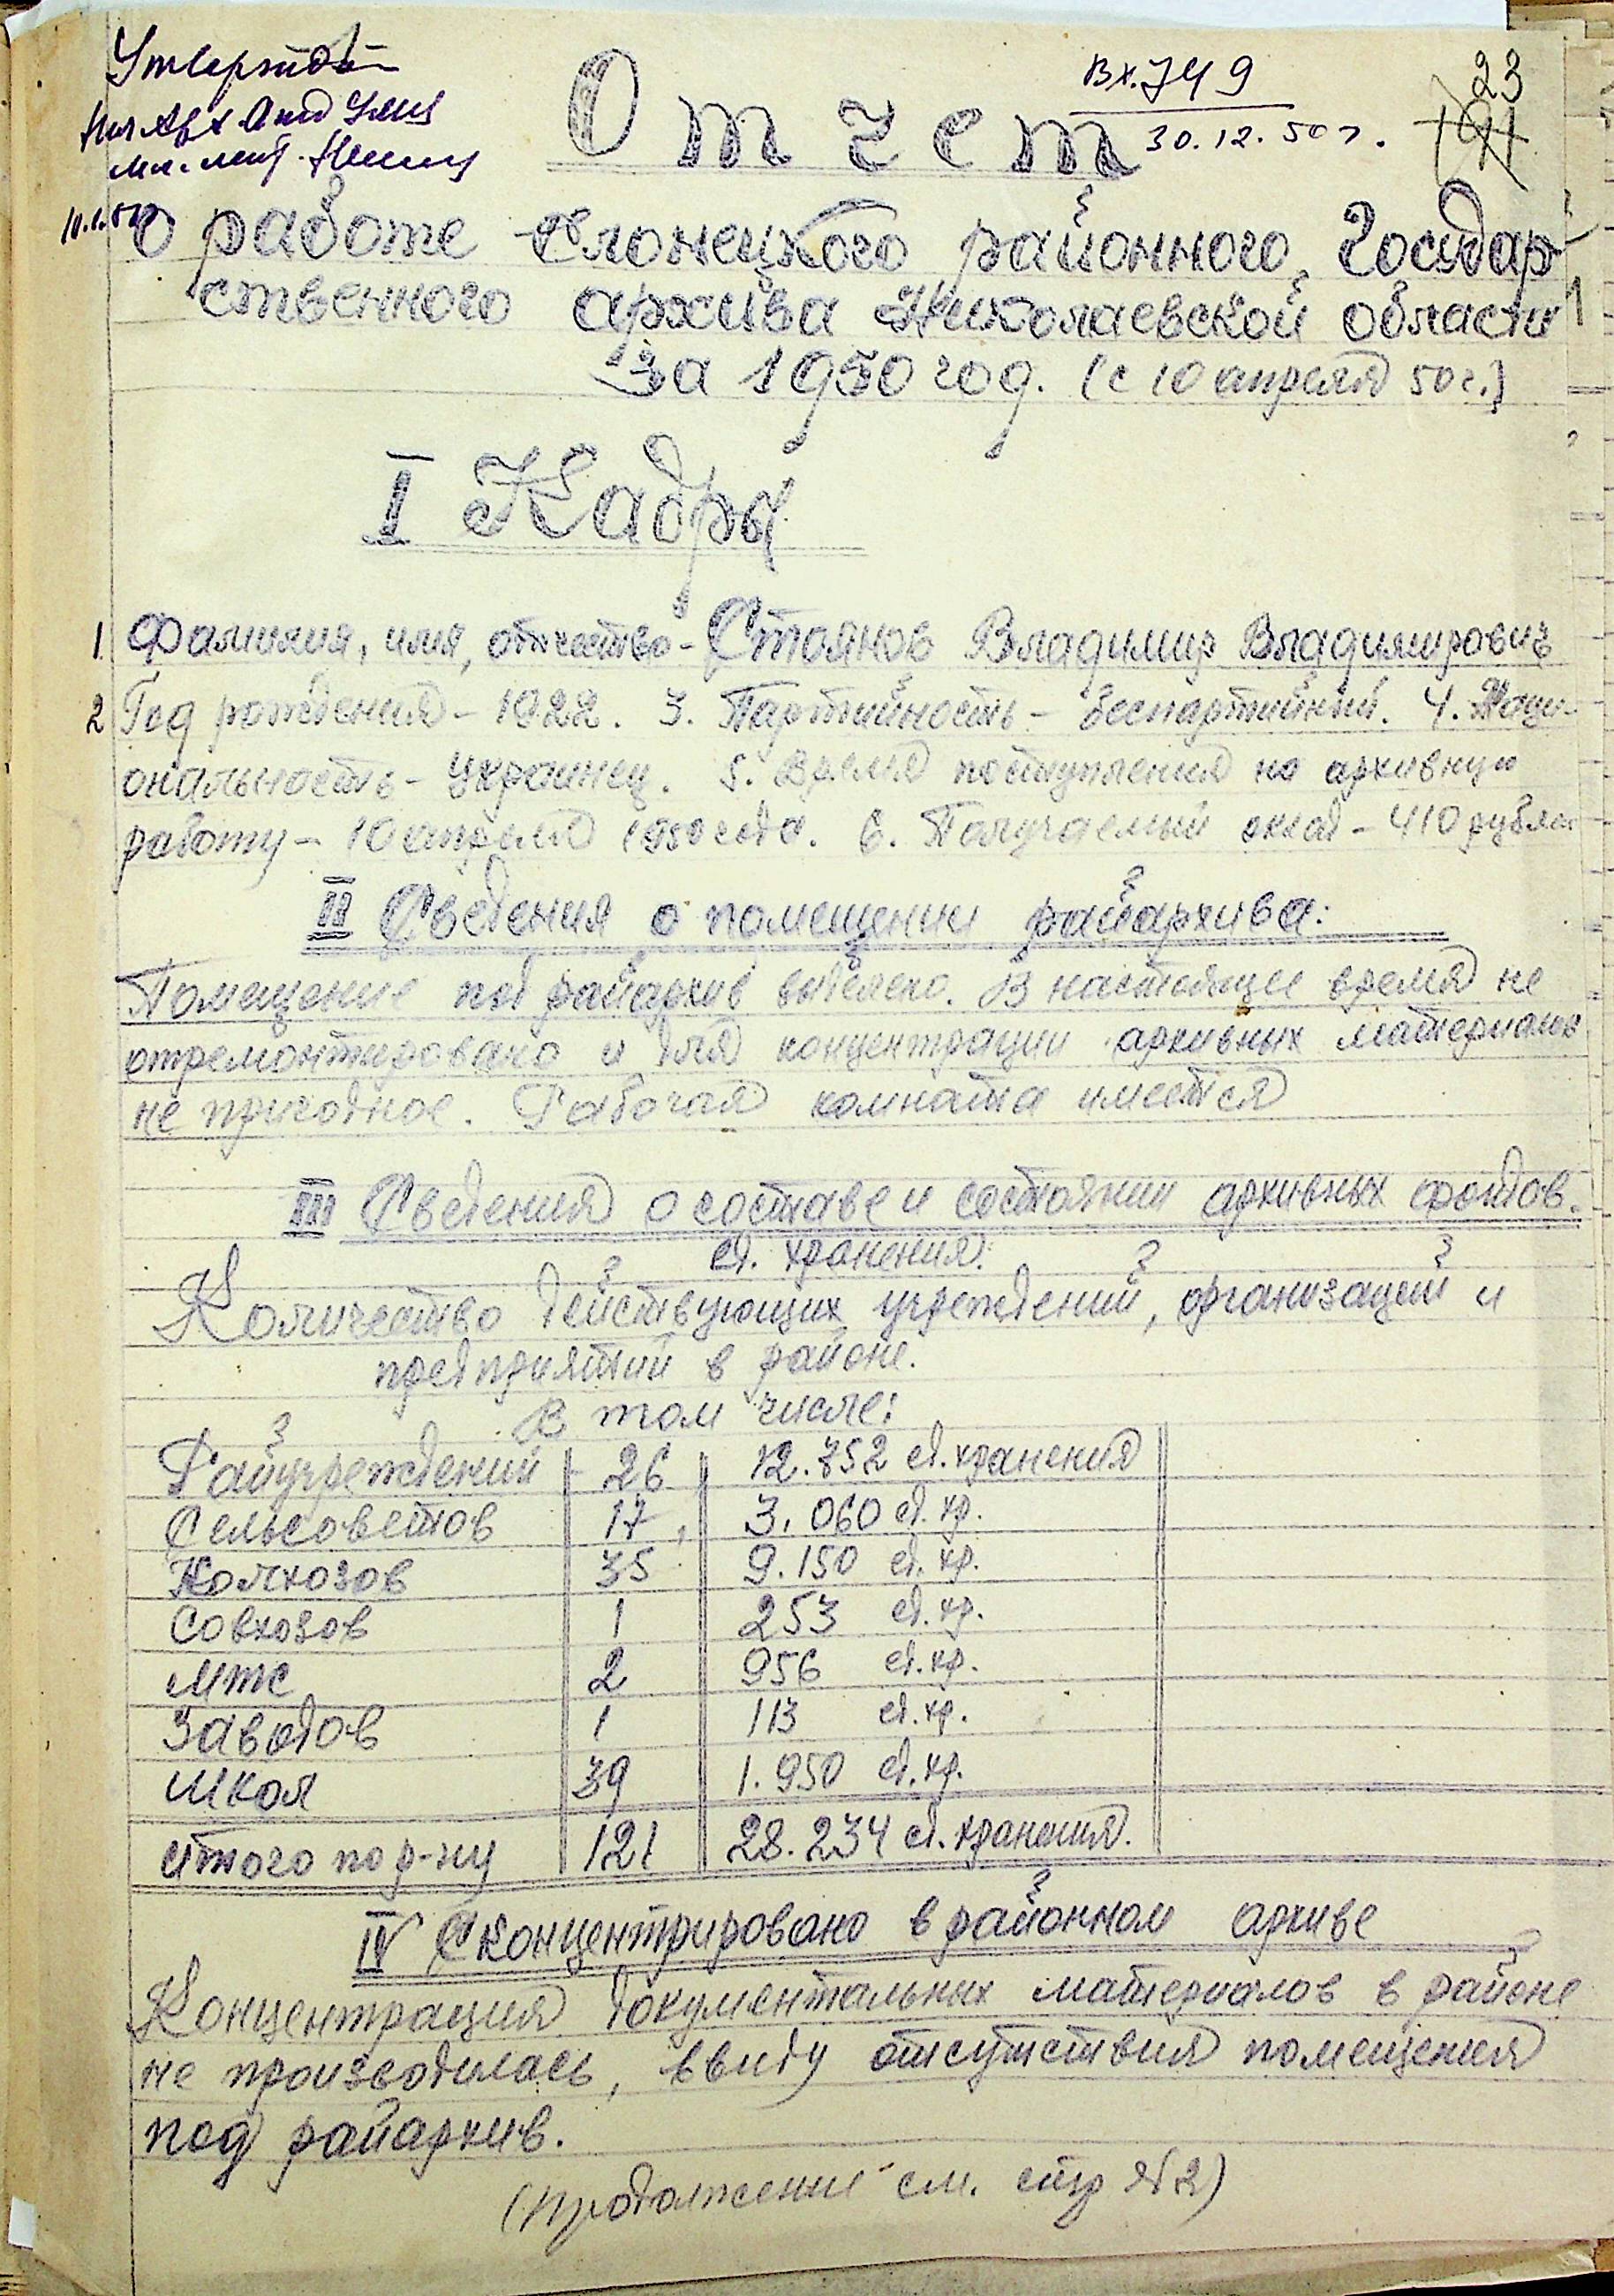 Утверждаю
Нач Арх. Отд УМВД
мл. лейт.
Вх. 749
30.12.50 г.
23
Отчет
о работе Еланецкого районного Государ-
ственного архива Николаевской области
за 1950 год. (с 10 апреля 50 г.)
I Кадры
1 Фамилия, имя, отчество - Стоянов Владимир Владимирович
2 Год рождения - 1922. 3. Партийность - беспартийный. 4. Наци-
ональность - Украинец. 5. Время поступления на архивную
работу - 10 апреля 1950 года. 6. Получаемый оклад - 410 рублей
II Сведения о помещении райархива:
Помещение под райархив выделено. В настоящее время не
отремонтировано и для концентрации архивных материалов
не пригодное. Рабочая комната имеется
III Сведения о составе и состоянии архивных фондов.
ед. хранения:
Количество действующих учреждений, организаций и
предприятий в районе.
В том числе:
Райучреждений - 26 12.752 ед. хранения
Сельсоветов 17 3.060 ед. хр.
Колхозов 35 9.150 ед. хр.
Совхозов 1 253 ед. хр.
МТС 2 956 ед. хр.
Заводов 1 113 ед. хр.
Школ 39 1.950 ед. хр.
Итого по р-ну 121 28.234 ед. хранения.
IV Сконцентрировано в районном архиве
Концентрация документальных материалов в районе
не производилась, ввиду отсутствия помещения
под райархив.
(Продолжение см. стр №2)